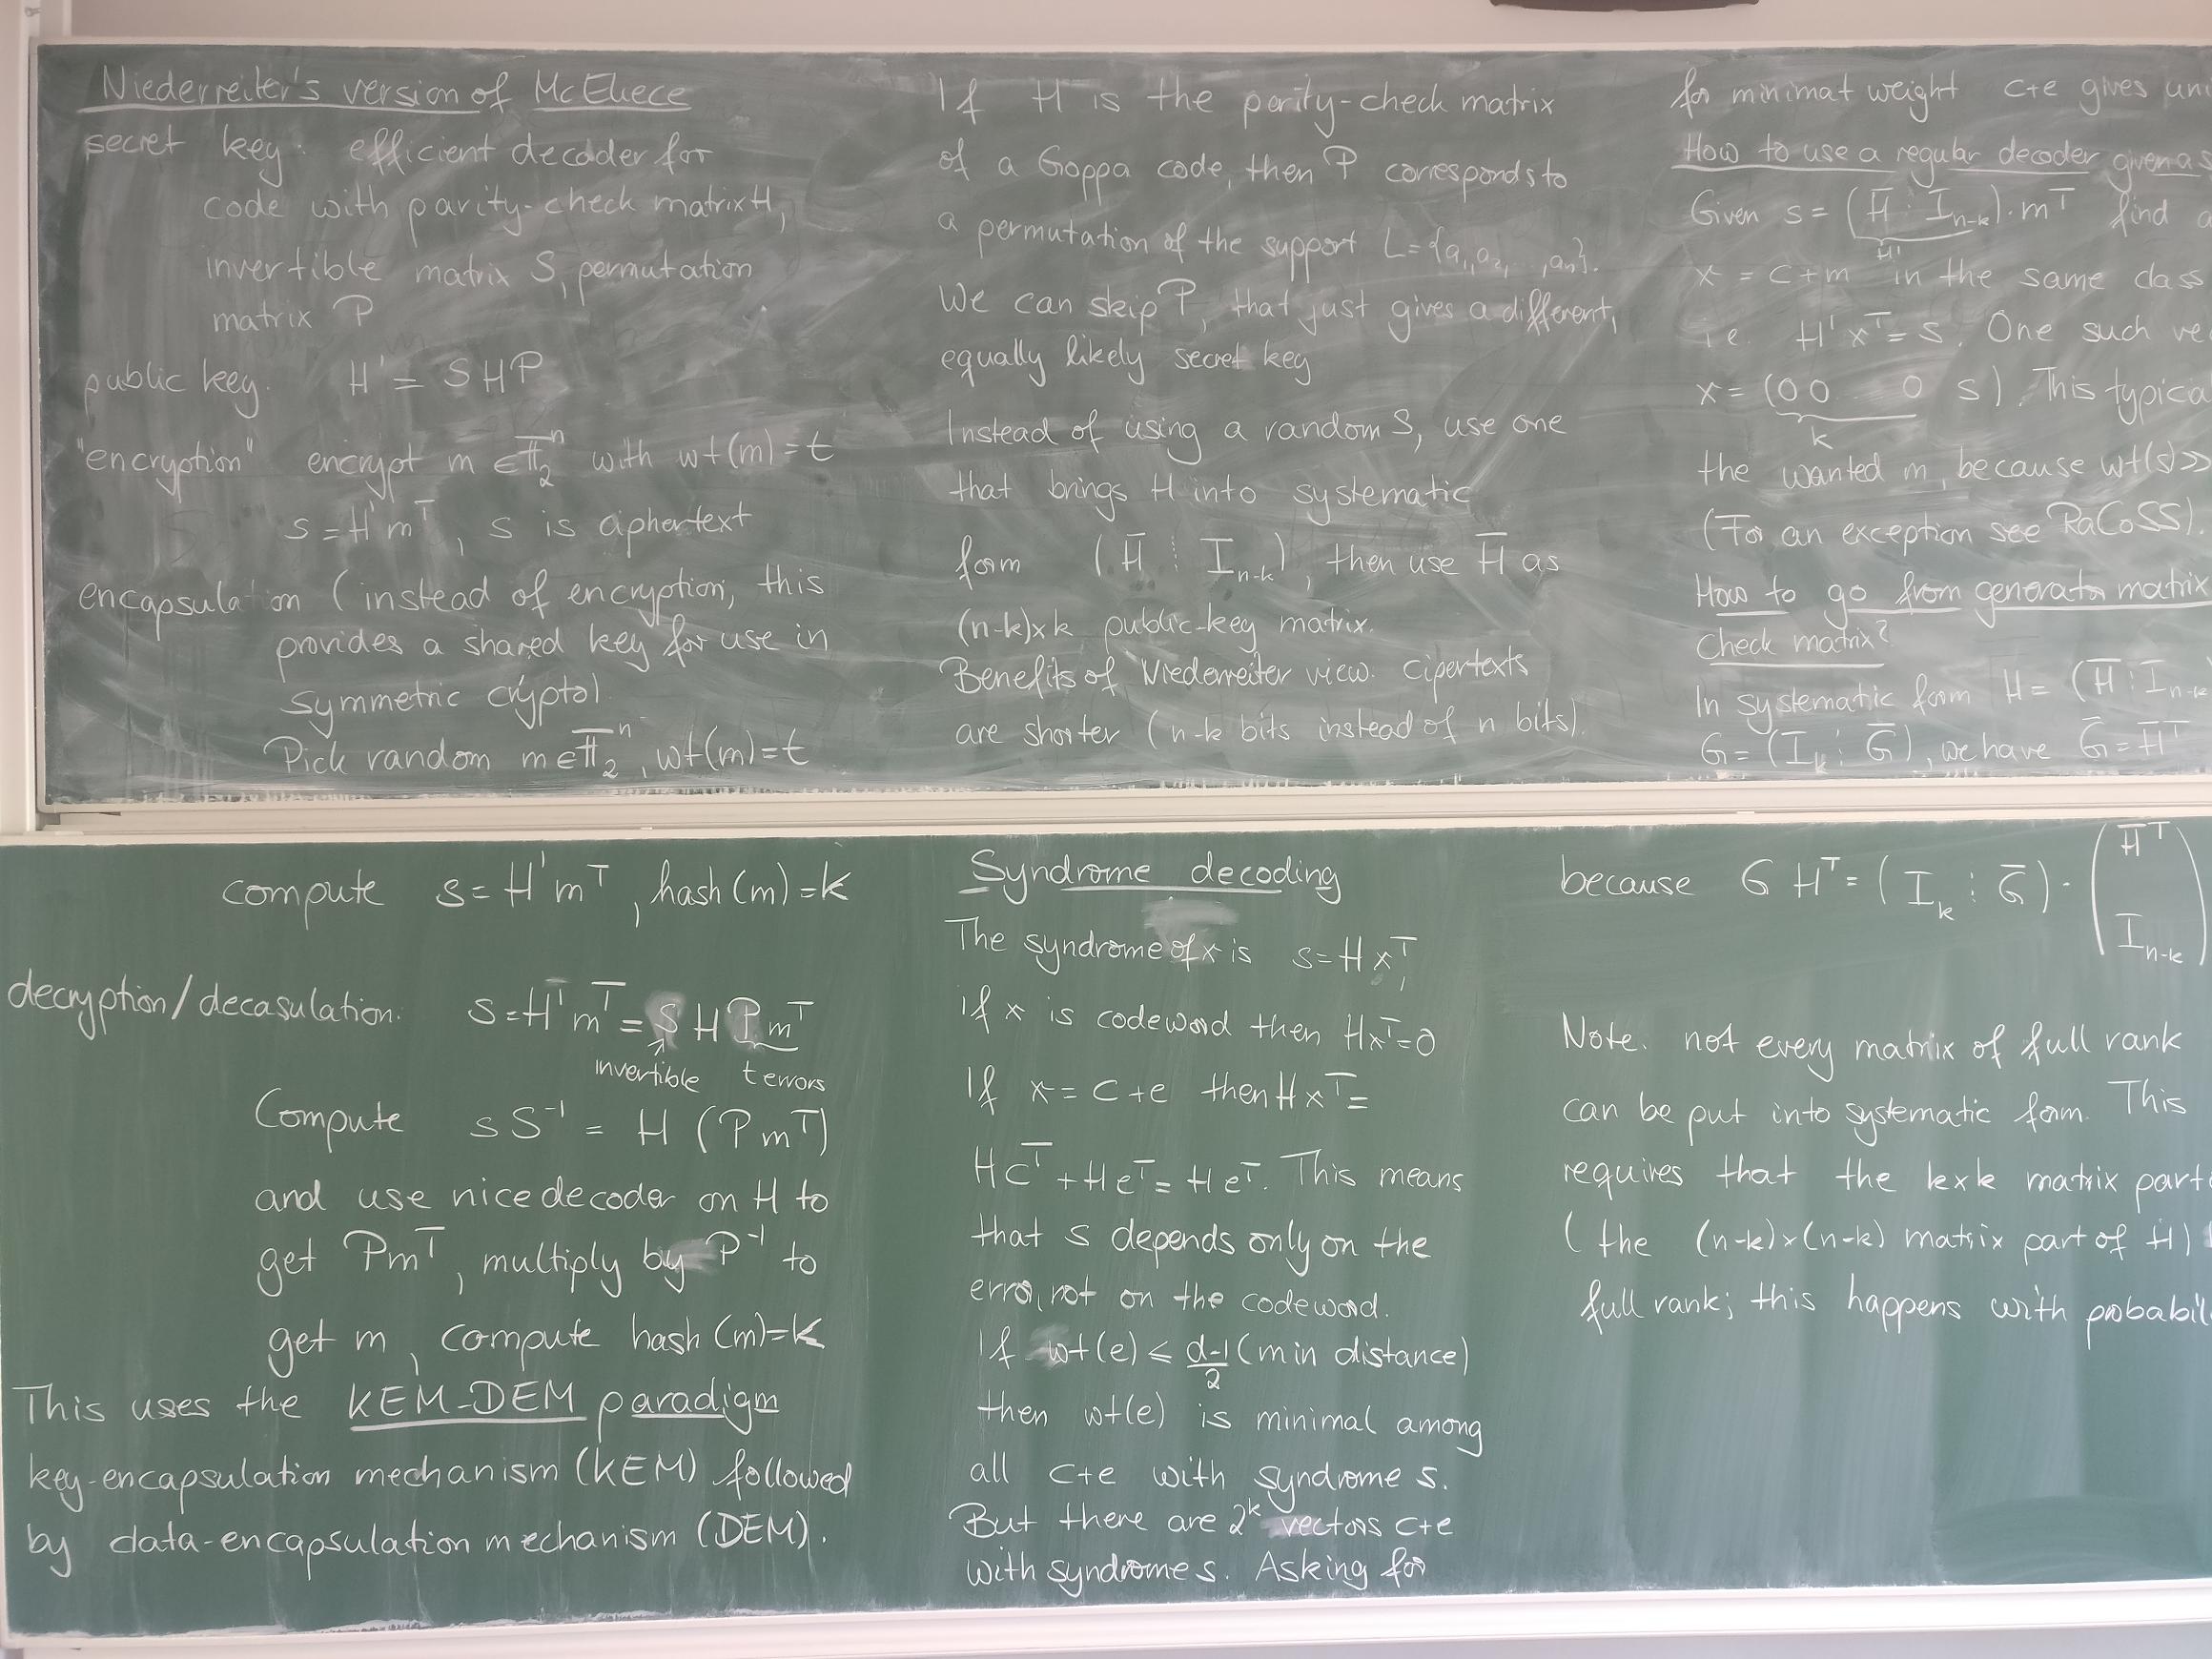 Niederreiter's version of McEliece
secret key: efficient decoder for
code with parity-check matrix H,
invertible matrix S, permutation
matrix P
public key. H' = S H P
"encryption" encrypt m ∈ F₂ⁿ with wt(m) = t
s = H'mᵀ, s is ciphertext
encapsulation (instead of encryption, this
provides a shared key for use in
symmetric crypto).
Pick random m ∈ F₂ⁿ, wt(m) = t
compute s = H'mᵀ, hash(m) = k
decryption/decasulation: s = H'mᵀ = S H P mᵀ
invertible t errors
Compute s S⁻¹ = H (P mᵀ)
and use nice decoder on H to
get Pmᵀ, multiply by P⁻¹ to
get m, compute hash(m) = k
This uses the KEM-DEM paradigm
key-encapsulation mechanism (KEM) followed
by data-encapsulation mechanism (DEM).
If H is the parity-check matrix
of a Goppa code, then P corresponds to
a permutation of the support L = {a₁, a₂, , aₙ}.
We can skip P, that just gives a different,
equally likely secret key
Instead of using a random S, use one
that brings H into systematic
form (H̄ ⋮ Iₙ₋ₖ), then use H̄ as
(n-k)×k public-key matrix.
Benefits of Niederreiter view. Cipertexts
are shorter (n-k bits instead of n bits).
Syndrome decoding
The syndrome of x is s = H xᵀ,
if x is codeword then Hxᵀ = 0
If x = c + e then H xᵀ =
Hcᵀ + Heᵀ = Heᵀ. This means
that s depends only on the
error, not on the codeword.
If wt(e) ≤ (d-1)/2 (min distance)
then wt(e) is minimal among
all c+e with syndrome s.
But there are 2ᵏ vectors c+e
with syndrome s. Asking for
for minimal weight c+e gives uni
How to use a regular decoder given a s
Given s = (H̄ ⋮ Iₙ₋ₖ)·mᵀ find a
H'
x = c + m in the same class
i.e. H'xᵀ = s. One such ve
x = (0 0 0 s). This typica
k
the wanted m, because wt(s) >>
(For an exception see RaCoSS).
How to go from generator matrix
Check matrix?
In systematic form H = (H̄ ⋮ Iₙ₋ₖ
G = (Iₖ ⋮ Ḡ), we have Ḡ = H̄ᵀ
because G Hᵀ = (Iₖ ⋮ Ḡ) · (H̄ᵀ
Iₙ₋ₖ)
Note. not every matrix of full rank
can be put into systematic form. This
requires that the k×k matrix part
(the (n-k)×(n-k) matrix part of H)
full rank; this happens with probabil